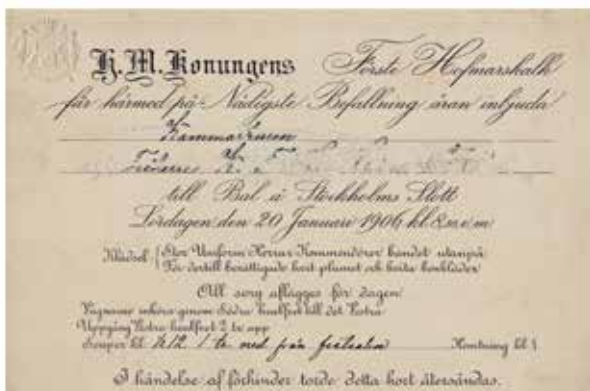 H. M. Konungens Förste Hofmarskalk
får härmed på Nådigste Befallning äran inbjuda
Kammarherren
Friherre
till Bal å Stockholms Slott
Lördagen den 20 Januari 1906 kl 8.30 e m
Klädsel: Stor Uniform Herrar Kommendörer bandet utanpå
För dertill berättigade kort plumet och hvita benkläder
All sorg aflägges för dagen
Vagnarne inköra genom Södra hvalfvet till det Vestra
Uppgång Vestra hvalfvet 2 tr upp
Souper kl. 1/2 12 1 tr ned från festsalen Hemtning kl 1
I händelse af förhinder torde detta kort återsändas.